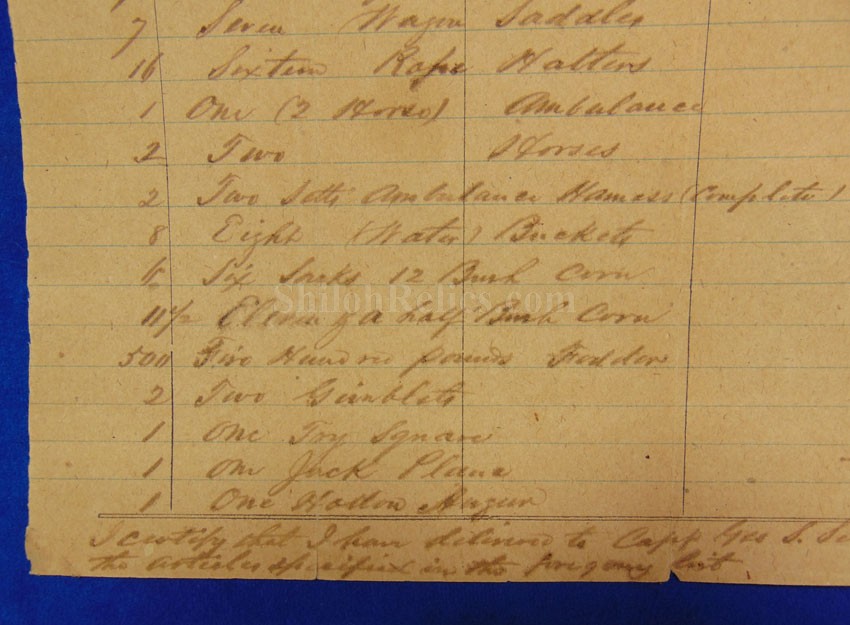 7 Seven Wagon Saddles
16 Sixteen Rope Halters
1 One (2 Horse) Ambulance
2 Two Horses
2 Two Setts Ambulance Harness (Complete)
8 Eight (Water) Buckets
6 Six Sacks 12 Bush Corn
ShilohRelics.com
11 1/2 Eleven & a half Bush Corn
500 Five Hundred pounds Fodder
2 Two Gimblets
1 One Try Square
1 One Jack Plane
1 One Hollow Augur
I certify that I have delivered to Capt Geo S.
the articles specified in the foregoing list